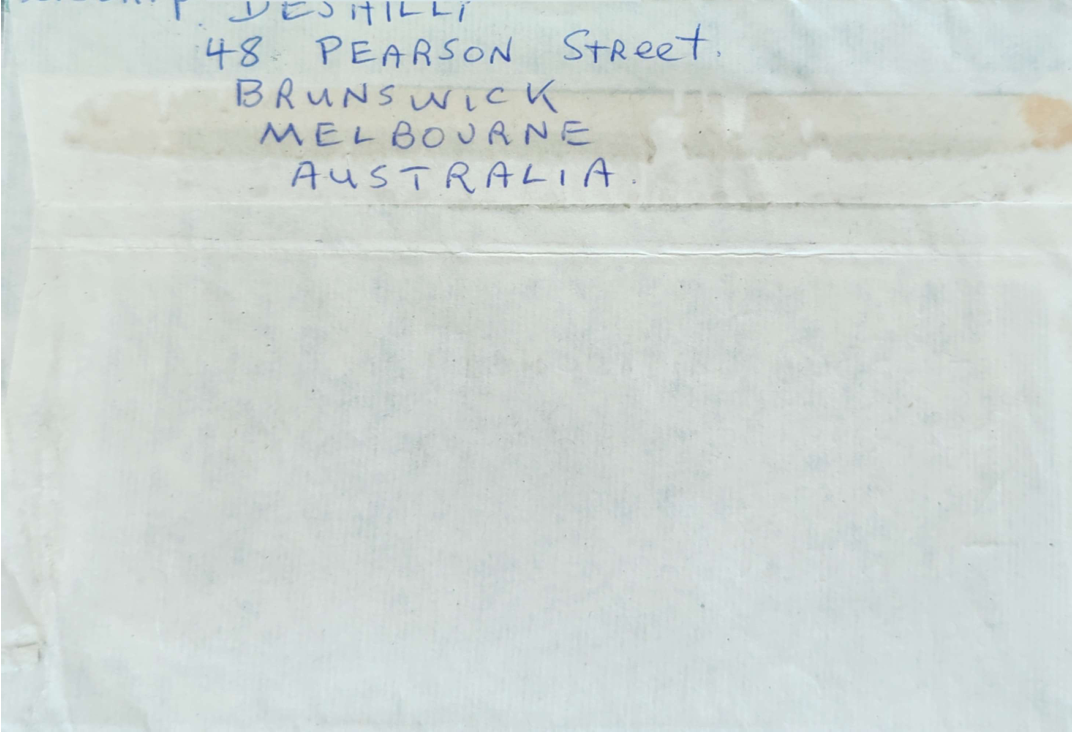 48. PEARSON Street.
BRUNSWICK
MELBOURNE
AUSTRALIA.